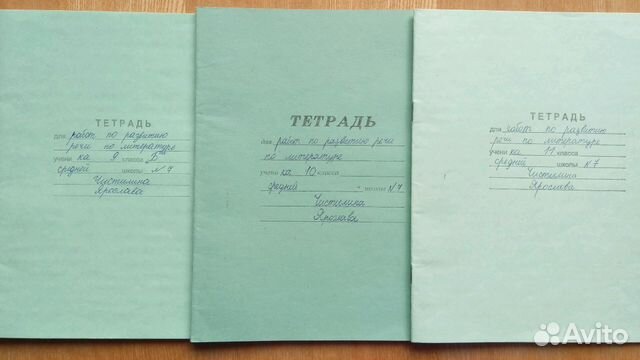 ТЕТРАДЬ
для работ по развитию
речи по литературе
учени ка 9 класса "Б"
средней школы №7
Чистилина
Ярослава
ТЕТРАДЬ
для работ по развитию речи
по литературе
учени ка 10 класса
средней школы №7
Чистилина
Ярослава
ТЕТРАДЬ
для работ по развитию
речи по литературе
учени ка 11 класса
средней школы №7
Чистилина
Ярослава
Avito